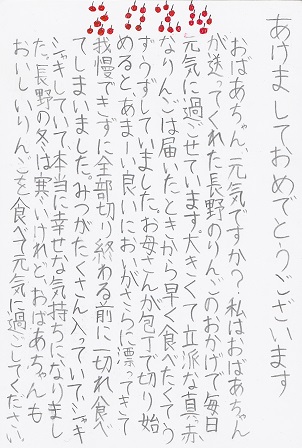 2026
あけましておめでとうございます
おばあちゃん、元気ですか？私はおばあちゃん
が送ってくれた長野のりんごのおかげで毎日
元気に過ごせています。大きくて立派な真赤
なりんごは届いたときから早く食べたくてう
ずうずしていました。お母さんが包丁で切り始
めると、あまーい良いにおいがさらに漂ってきて
我慢できずに全部切り終わる前に一切れ食べ
てしまいました。みつがたくさん入っていてシャキ
シャキしていて本当に幸せな気持ちになりまし
た。長野の冬は寒いけれど、おばあちゃんも
おいしいりんごを食べて元気に過ごしてください。